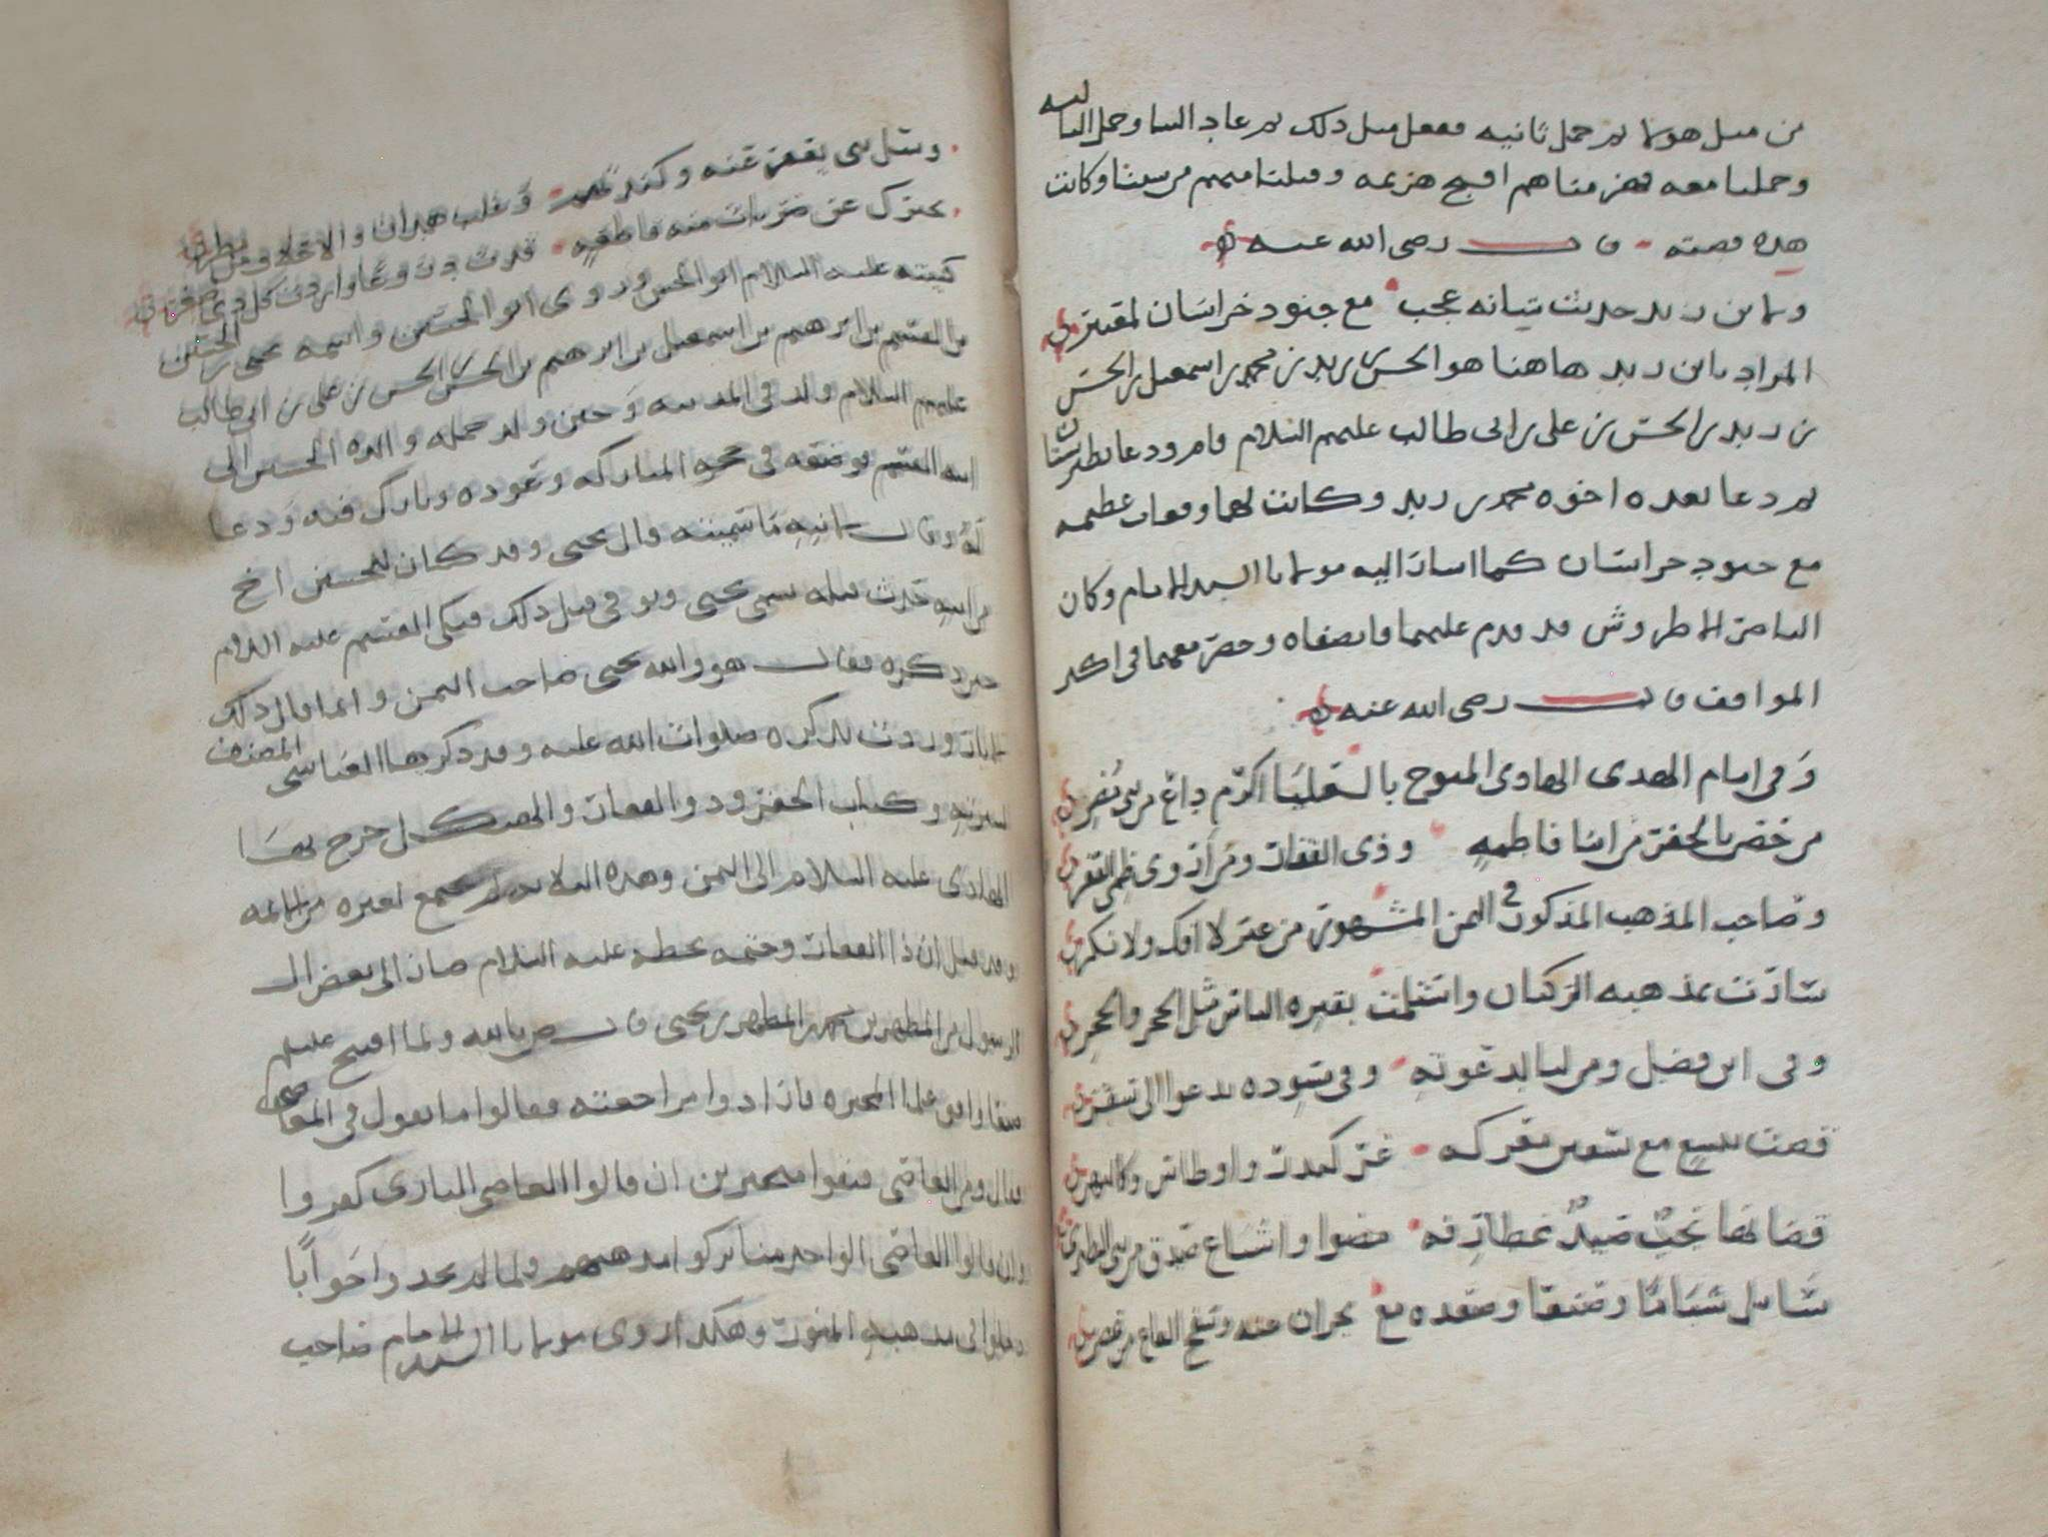 من مثل هولا ثم حمل ثانيه ففعل مثل ذلك ثم عاد الينا وحمل الثالثه
وحملنا معه فهزمناهم اقبح هزيمه وقتلنا منهم من شئنا وكانت
هذه قصته قال رضي الله عنه
ولابن زيد حديث شانه عجب مع جنود خراسان لمعتبر
المراد بابن زيد هاهنا هو الحسن بن زيد بن محمد بن اسمعيل بن الحسن
بن زيد بن الحسن بن علي بن ابي طالب عليهم السلام قام ودعا بطبرستان
ثم دعا بعده اخوه محمد بن زيد وكانت لهما وقعات عظيمه
مع جنود خراسان كما اشار اليه مولانا السيد الامام وكان
الناصر الاطروش قد قدم عليهما فانصفاه وحضر معهما في اكثر
المواقف قال رضي الله عنه
وفي امام الهدى الهادي المتوج بالعليا اكرم داع من بني مضر
من خص بالجفر من ابنا فاطمه وذي الفقار ومن اروى ظمي الفقر
وصاحب المذهب المذكور في اليمن المشهور من غير لا افك ولا نكر
سارت بمذهبه الركبان واستلمت بقبره الناس مثل الحجر والحجر
وفي ابن فضل ومن لبا لدعوته وفي بنوده يدعوا الى سقر
قضت بتسع مع تسعين معركه غر كبدر واوطاس وكالنهر
قضا لها نحب صيد غطارفه مضوا واشياع صدق من بني الطبر
سايل شباما وصنعا وصعده مع نجران عنه وسفح القاع من عصر
وسل بني يعفر عنه وكندتهم وقلب همدان والاحلاف من مطر
يخبرك عن ضربات منه فاطميه قدت بدروعا واردت كل ذي صعر
كنيته عليه السلام ابو الحسين وروي ابو الحسن واسمه يحيى بن الحسين
بن القسم بن ابرهيم بن اسمعيل بن ابرهيم بن الحسن بن الحسن بن علي بن ابي طالب
عليهم السلام ولد في المدينه وحين ولد حمله والده الحسين الى
ابيه القسم فوضعه في حجره المباركه وعوذه وبارك فيه ودعا
له وقال لابنه ما سميته قال يحيى وقد كان للحسين اخ
من ابيه حدث قبله يسمى يحيى وتوفي قبل ذلك فبكى القسم عليه السلام
حين ذكره فقال هو والله يحيى صاحب اليمن وانما قال ذلك
لاخبار وردت بذكره صلوات الله عليه وقد ذكرها العباسي المصنف
لسيرته وكتاب الجفر وذو الفقار خرج بها
الهادي عليه السلام الى اليمن وهذه الثلاثه لم تجتمع لغيره من الائمه
وقد قيل ان ذا الفقار وختمه بخطه عليه السلام صار الى بعض ال
الرسول من المطهر بن محمد بن المطهر بن يحيى قال ولما افتتح عليلم
صنعا وافق علما المجبره فارادوا مراجعته فقالوا ما تقول في المعاصي
فقال ومن العاصي فبقوا متحيرين ان قالوا العاصي الباري كفروا
وان قالوا العاصي الواحد منا تركوا مذهبهم فلما لم يجدوا جوابا
دخلوا في مذهبه المنور وهكذا روى مولانا السيد الامام صاحب